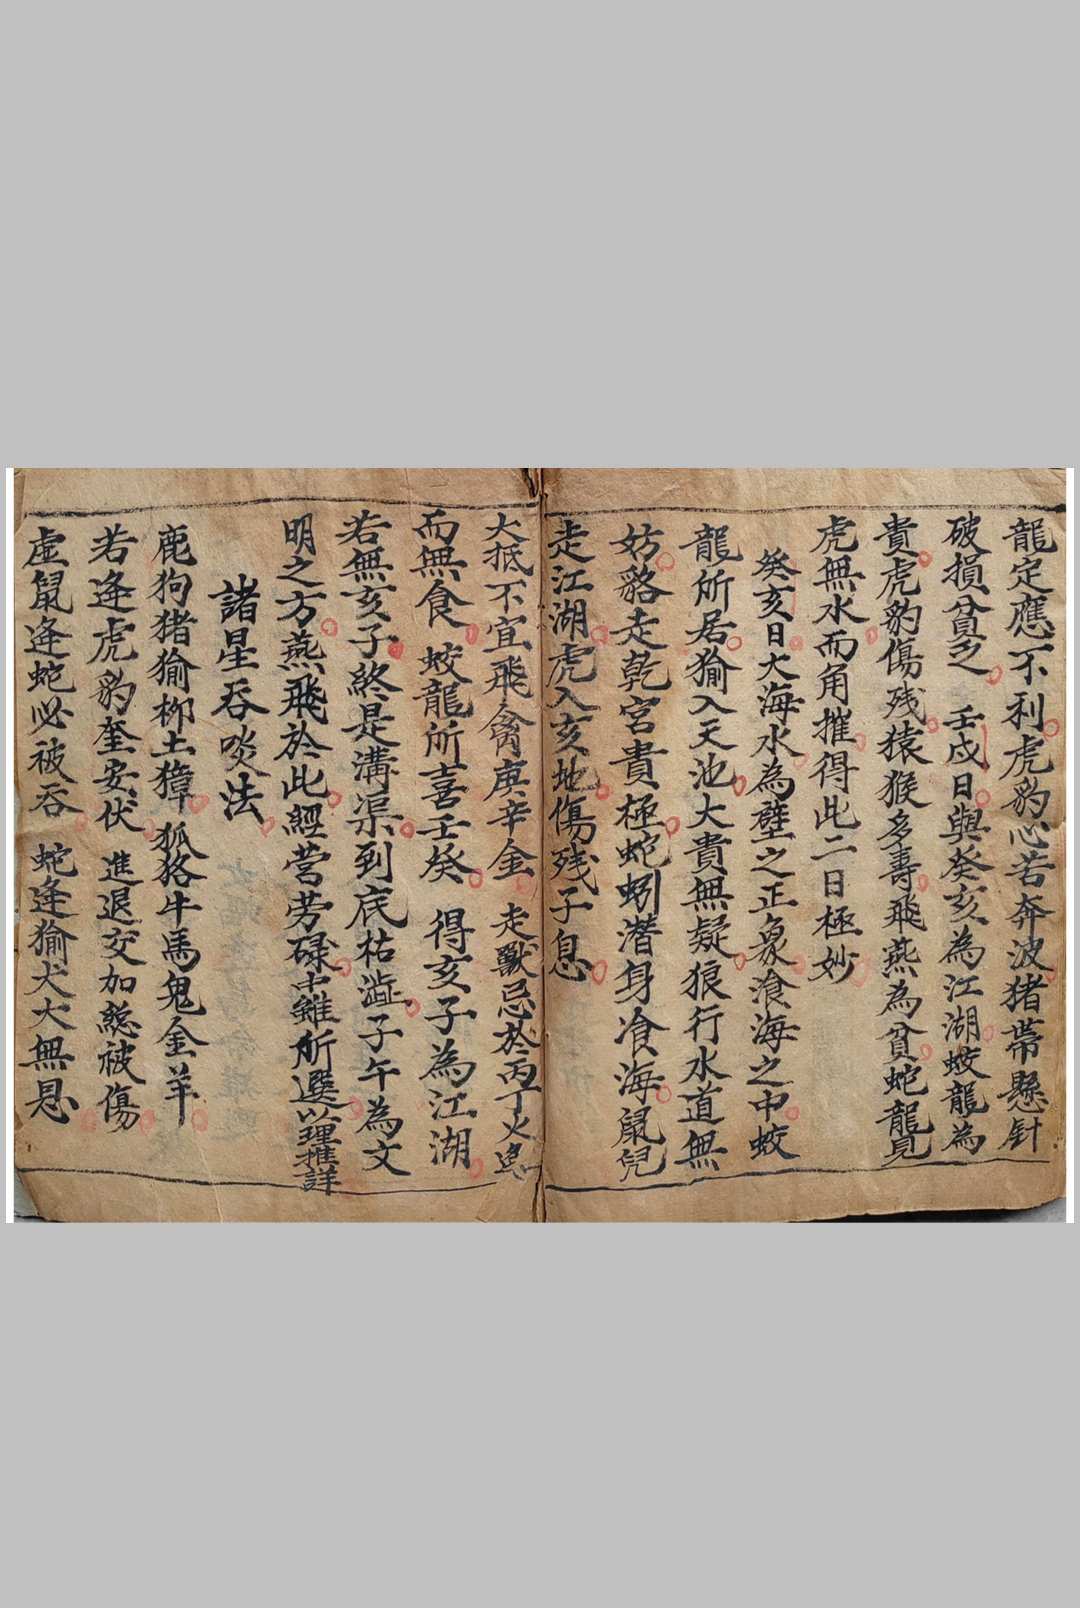 龍定應不利虎豹心若奔波猪帶懸針
破損貧乏 壬戌日與癸亥為江湖蛟龍為
貴虎豹傷残猿猴多壽飛燕為貧蛇龍見
虎無水而角摧得此二日極妙
癸亥日大海水為壁之正象滄海之中蛟
龍所居㺄入天池大貴無疑狼行水道無
妨貉走乾宮貴極蛇蚓潜身滄海鼠兒
走江湖虎入亥地傷残子息
大抵不宜飛禽庚辛金 走獸忌於丙丁火
而無食 蛟龍所喜壬癸 得亥子為江湖
若無亥子終是溝渠到底枯澁子午為文
明之方燕飛於此經營劳碌中雖所選以理推詳
諸星吞啖法
鹿狗猪㺄柳土獐 狐狢牛馬鬼金羊
若逢虎豹奎安伏 進退交加總被傷
虛鼠逢蛇必被吞 蛇逢㺄犬大無恩